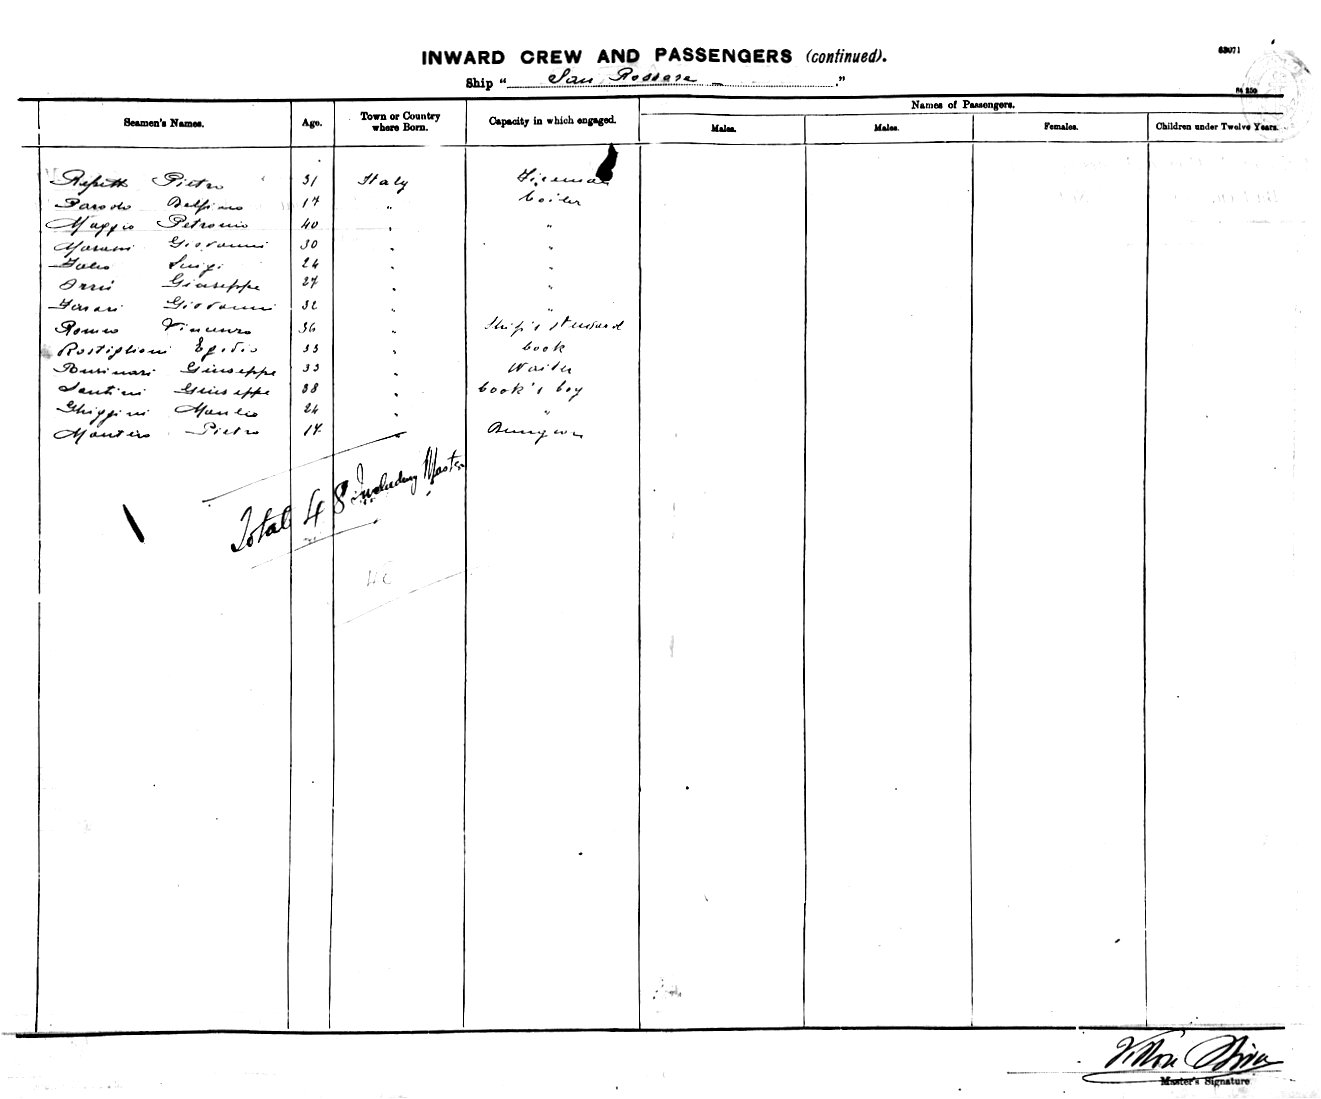 INWARD CREW AND PASSENGERS (continued).
63071
Ship " San Rossore "
Seamen's Names. Age. Town or Country where Born. Capacity in which engaged. Names of Passengers.
Males. Males. Females. Children under Twelve Years.
Pietro 31 Italy Fireman
17 " Coiler
Maggio Petronio 40 " "
Giovanni 30 " "
Luigi 24 " "
Orrù Giuseppe 27 " "
Ferrari Giovanni 32 " "
Romeo Vincenzo 36 " Ship's steward
Egidio 33 " Cook
Giuseppe 33 " Waiter
Santini Giuseppe 38 " Cook's boy
Ghiggini Manlio 24 " "
Pietro 17
Total 48 including Master
Master's Signature